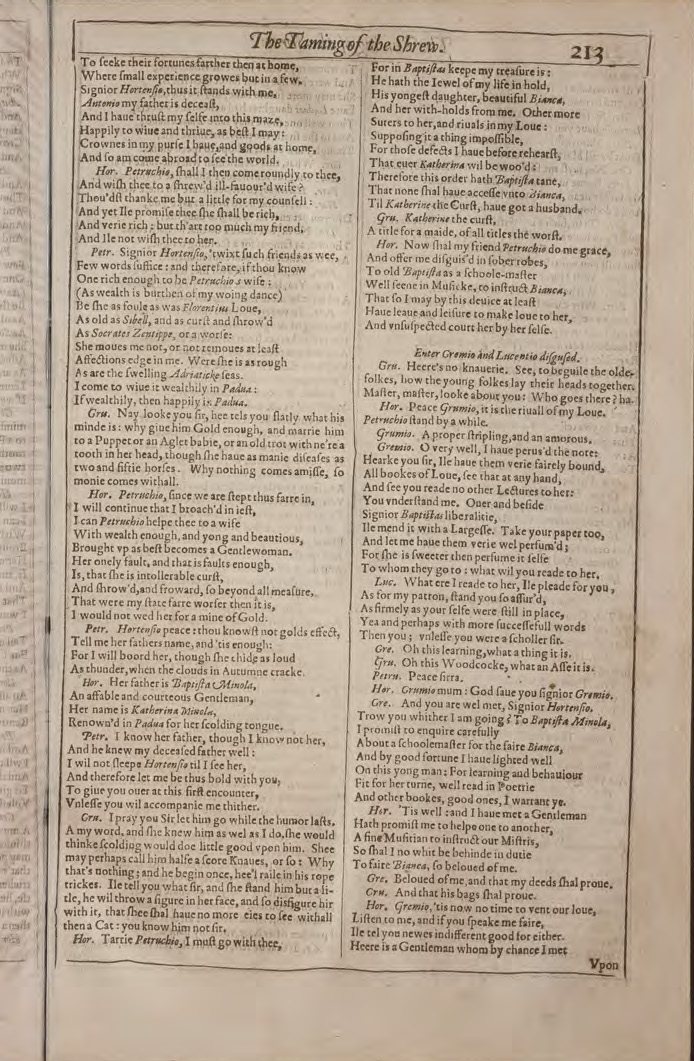 The Taming of the Shrew.
213
To seeke their fortunes farther then at home,
Where small experience growes but in a few.
Signior Hortensio, thus it stands with me,
Antonio my father is deceast,
And I haue thrust my selfe into this maze,
Happily to wiue and thriue, as best I may:
Crownes in my purse I haue, and goods at home,
And so am come abroad to see the world.
Hor. Petruchio, shall I then come roundly to thee,
And wish thee to a shrew'd ill-fauour'd wife?
Thou'dst thanke me but a little for my counsell:
And yet Ile promise thee she shall be rich,
And verie rich: but th'art too much my friend,
And Ile not wish thee to her.
Petr. Signior Hortensio, 'twixt such friends as wee,
Few words suffice: and therefore, if thou know
One rich enough to be Petruchio's wife:
(As wealth is burthen of my woing dance)
Be she as foule as was Florentius Loue,
As old as Sibell, and as curst and shrow'd
As Socrates Zentippe, or a worse:
She moues me not, or not remoues at least
Affections edge in me. Were she is as rough
As are the swelling Adriaticke seas.
I come to wiue it wealthily in Padua:
If wealthily, then happily in Padua.
Gru. Nay looke you sir, hee tels you flatly what his
minde is: why giue him Gold enough, and marrie him
to a Puppet or an Aglet babie, or an old trot with ne're a
tooth in her head, though she haue as manie diseases as
two and fiftie horses. Why nothing comes amisse, so
monie comes withall.
Hor. Petruchio, since we are stept thus farre in,
I will continue that I broach'd in iest,
I can Petruchio helpe thee to a wife
With wealth enough, and yong and beautious,
Brought vp as best becomes a Gentlewoman.
Her onely fault, and that is faults enough,
Is, that she is intollerable curst,
And shrow'd, and froward, so beyond all measure,
That were my state farre worser then it is,
I would not wed her for a mine of Gold.
Petr. Hortensio peace: thou knowst not golds effect,
Tell me her fathers name, and 'tis enough:
For I will boord her, though she chide as loud
As thunder, when the clouds in Autumne cracke.
Hor. Her father is Baptista Minola,
An affable and courteous Gentleman,
Her name is Katherina Minola,
Renown'd in Padua for her scolding tongue.
Petr. I know her father, though I know not her,
And he knew my deceased father well:
I wil not sleepe Hortensio til I see her,
And therefore let me be thus bold with you,
To giue you ouer at this first encounter,
Vnlesse you wil accompanie me thither.
Gru. I pray you Sir let him go while the humor lasts.
A my word, and she knew him as wel as I do, she would
thinke scolding would doe little good vpon him. Shee
may perhaps call him halfe a score Knaues, or so: Why
that's nothing; and he begin once, hee'l raile in his rope
trickes. Ile tell you what sir, and she stand him but a li-
tle, he wil throw a figure in her face, and so disfigure hir
with it, that shee shal haue no more eies to see withall
then a Cat: you know him not sir.
Hor. Tarrie Petruchio, I must go with thee,
For in Baptistas keepe my treasure is:
He hath the Iewel of my life in hold,
His yongest daughter, beautiful Bianca,
And her with-holds from me. Other more
Suters to her, and riuals in my Loue:
Supposing it a thing impossible,
For those defects I haue before rehearst,
That euer Katherina wil be woo'd:
Therefore this order hath Baptista tane,
That none shal haue accesse vnto Bianca,
Til Katherine the Curst, haue got a husband.
Gru. Katherine the curst,
A title for a maide, of all titles the worst.
Hor. Now shal my friend Petruchio do me grace,
And offer me disguis'd in sober robes,
To old Baptista as a schoole-master
Well seene in Musicke, to instruct Bianca,
That so I may by this deuice at least
Haue leaue and leisure to make loue to her,
And vnsuspected court her by her selfe.
Enter Gremio and Lucentio disgused.
Gru. Heere's no knauerie. See, to beguile the olde-
folkes, how the young folkes lay their heads together.
Master, master, looke about you: Who goes there? ha.
Hor. Peace Grumio, it is the riuall of my Loue.
Petruchio stand by a while.
Grumio. A proper stripling, and an amorous.
Gremio. O very well, I haue perus'd the note:
Hearke you sir, Ile haue them verie fairely bound,
All bookes of Loue, see that at any hand,
And see you reade no other Lectures to her:
You vnderstand me. Ouer and beside
Signior Baptistas liberalitie,
Ile mend it with a Largesse. Take your paper too,
And let me haue them verie wel perfum'd;
For she is sweeter then perfume it selfe
To whom they go to: what wil you reade to her.
Luc. What ere I reade to her, Ile pleade for you,
As for my patron, stand you so assur'd,
As firmely as your selfe were still in place,
Yea and perhaps with more successefull words
Then you; vnlesse you were a scholler sir.
Gre. Oh this learning, what a thing it is.
Gru. Oh this Woodcocke, what an Asse it is.
Petru. Peace sirra.
Hor. Grumio mum: God saue you signior Gremio.
Gre. And you are wel met, Signior Hortensio.
Trow you whither I am going? To Baptista Minola,
I promist to enquire carefully
About a schoolemaster for the faire Bianca,
And by good fortune I haue lighted well
On this yong man: For learning and behauiour
Fit for her turne, well read in Poetrie
And other bookes, good ones, I warrant ye.
Hor. 'Tis well: and I haue met a Gentleman
Hath promist me to helpe one to another,
A fine Musitian to instruct our Mistris,
So shal I no whit be behinde in dutie
To faire Bianca, so beloued of me.
Gre. Beloued of me, and that my deeds shal proue.
Gru. And that his bags shal proue.
Hor. Gremio, 'tis now no time to vent our loue,
Listen to me, and if you speake me faire,
Ile tel you newes indifferent good for either.
Heere is a Gentleman whom by chance I met
Vpon